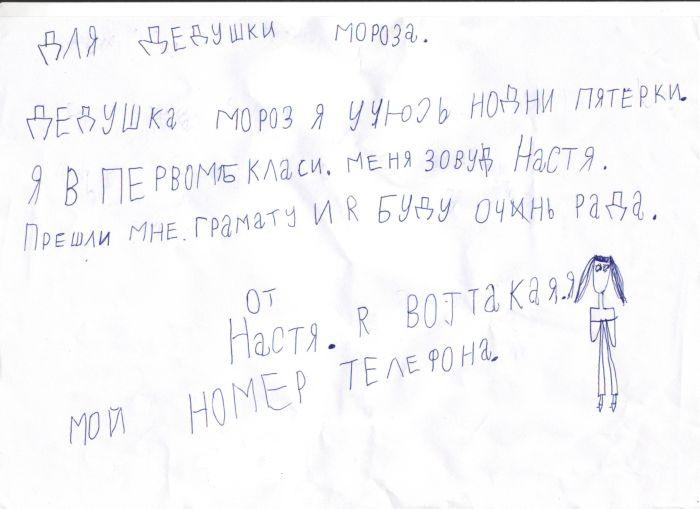 ДЛЯ ДЕДУШКИ МОРОЗА.
ДЕДУШКА МОРОЗ Я УЧЮСЬ НОДНИ ПЯТЕРКИ.
Я В ПЕРВОМЪ КЛАСИ. МЕНЯ ЗОВУД НАСТЯ.
ПРЕШЛИ МНЕ. ГРАМАТУ И Я БУДУ ОЧИНЬ РАДА.
ОТ
НАСТЯ. Я ВОТТАКАЯ.Я
МОЙ НОМЕР ТЕЛЕФОНА.